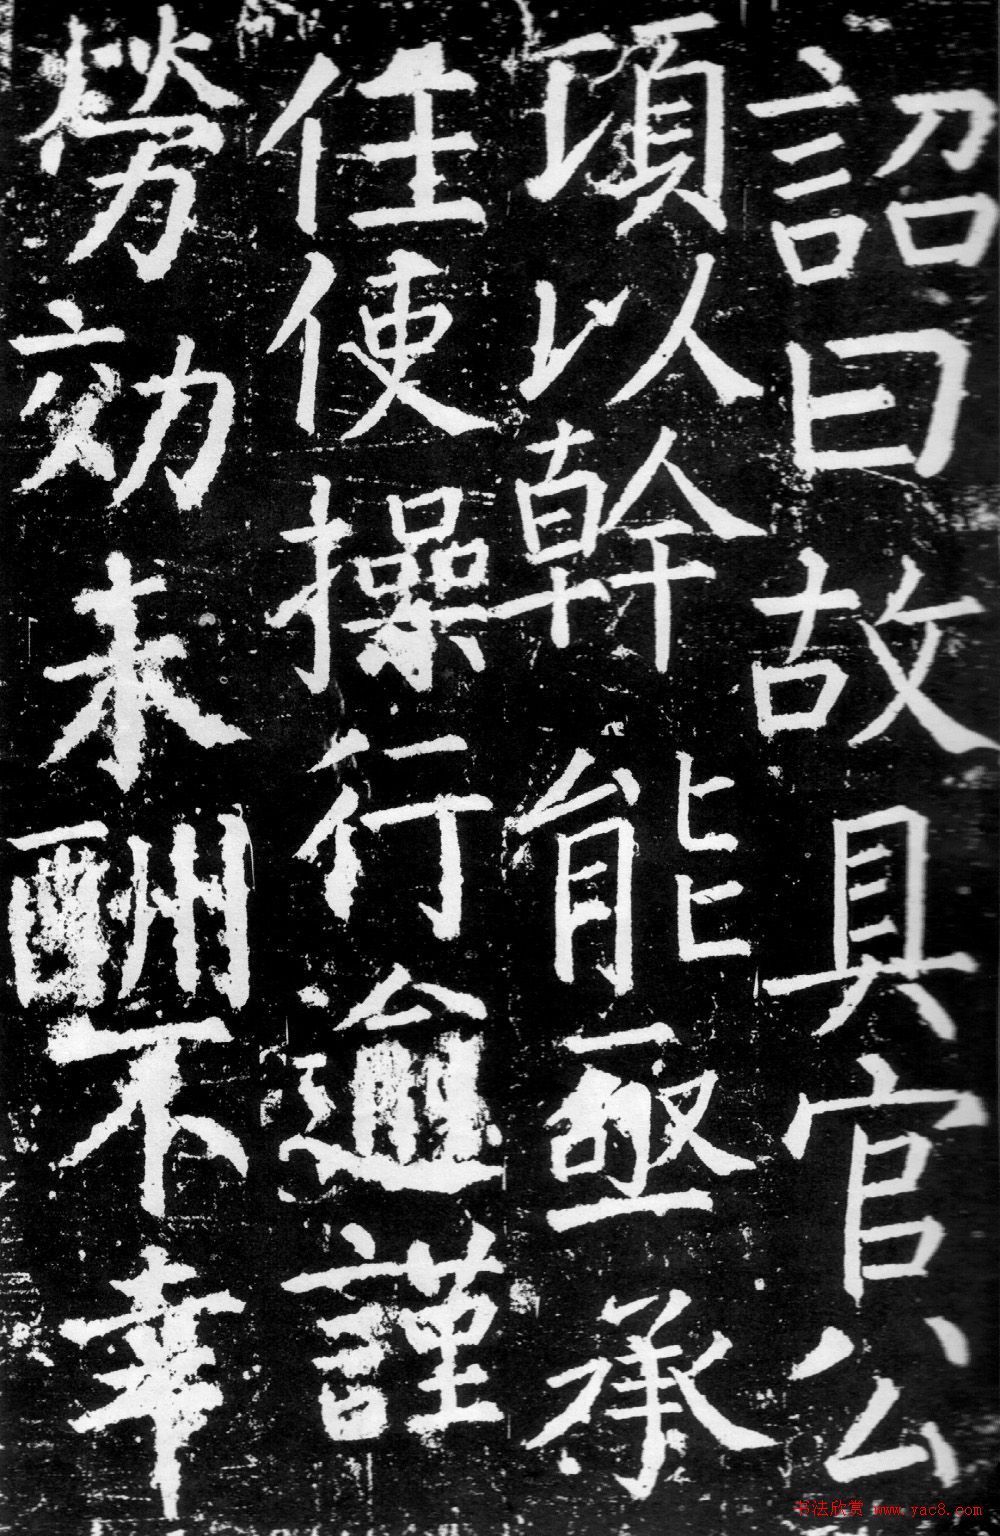 詔曰故具官公
頃以幹能亟承
任使操行逾謹
勞効未酬不幸
书法欣赏 www.yac8.com